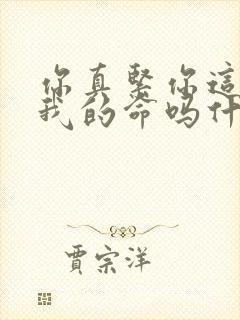 你真緊你這
我的命吗什
賈宗洋